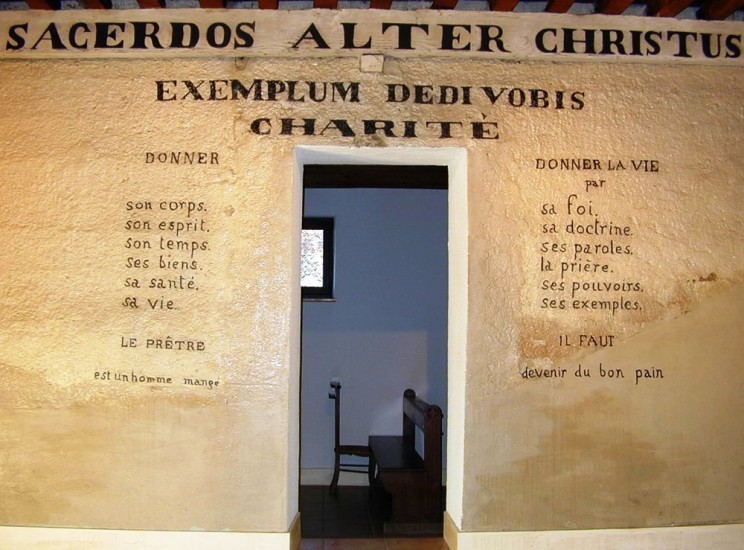 SACERDOS ALTER CHRISTUS
EXEMPLUM DEDI VOBIS
CHARITÈ
DONNER
son corps.
son esprit.
son temps.
ses biens.
sa santé.
sa vie.
LE PRÊTRE
est un homme mangé
DONNER LA VIE
par
sa foi.
sa doctrine.
ses paroles.
la prière.
ses pouvoirs.
ses exemples.
IL FAUT
devenir du bon pain